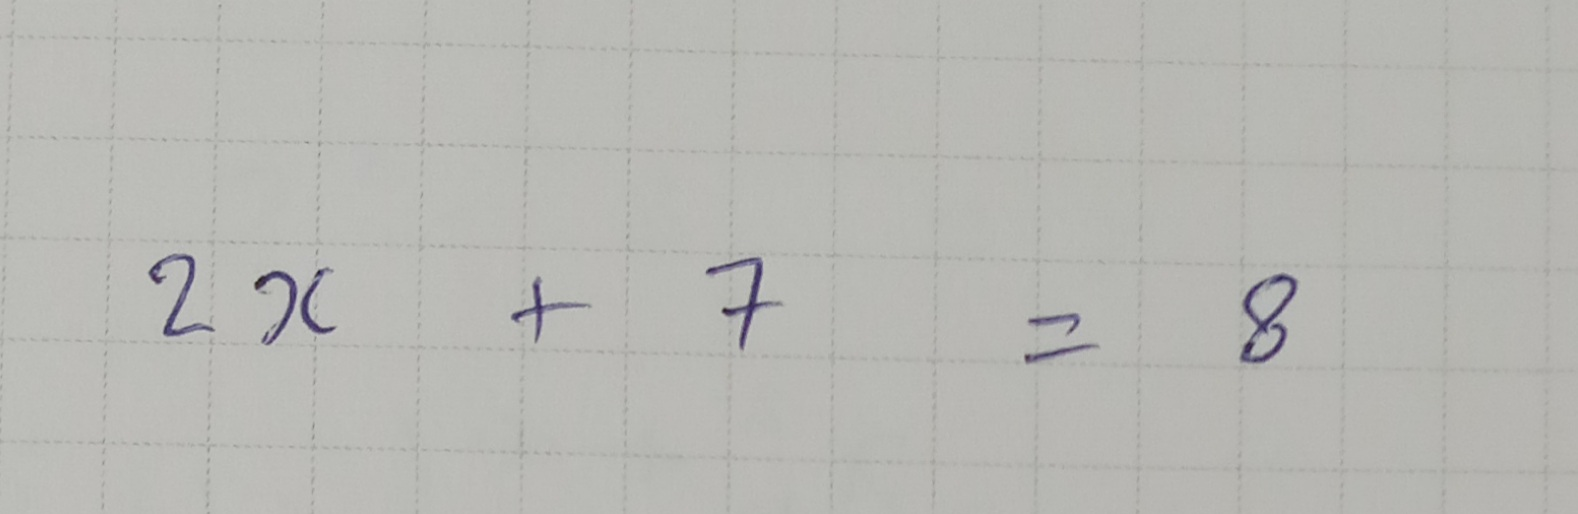 2x + 7 = 8